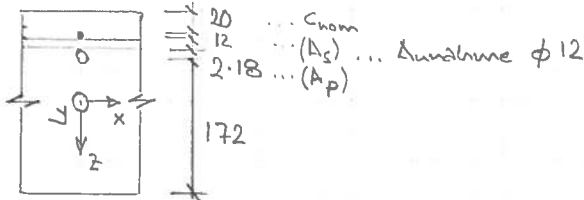 20 ... Cnom
12 ... (As) ... Annahme ϕ 12
2·18 ... (Ap)
y
x
z
172